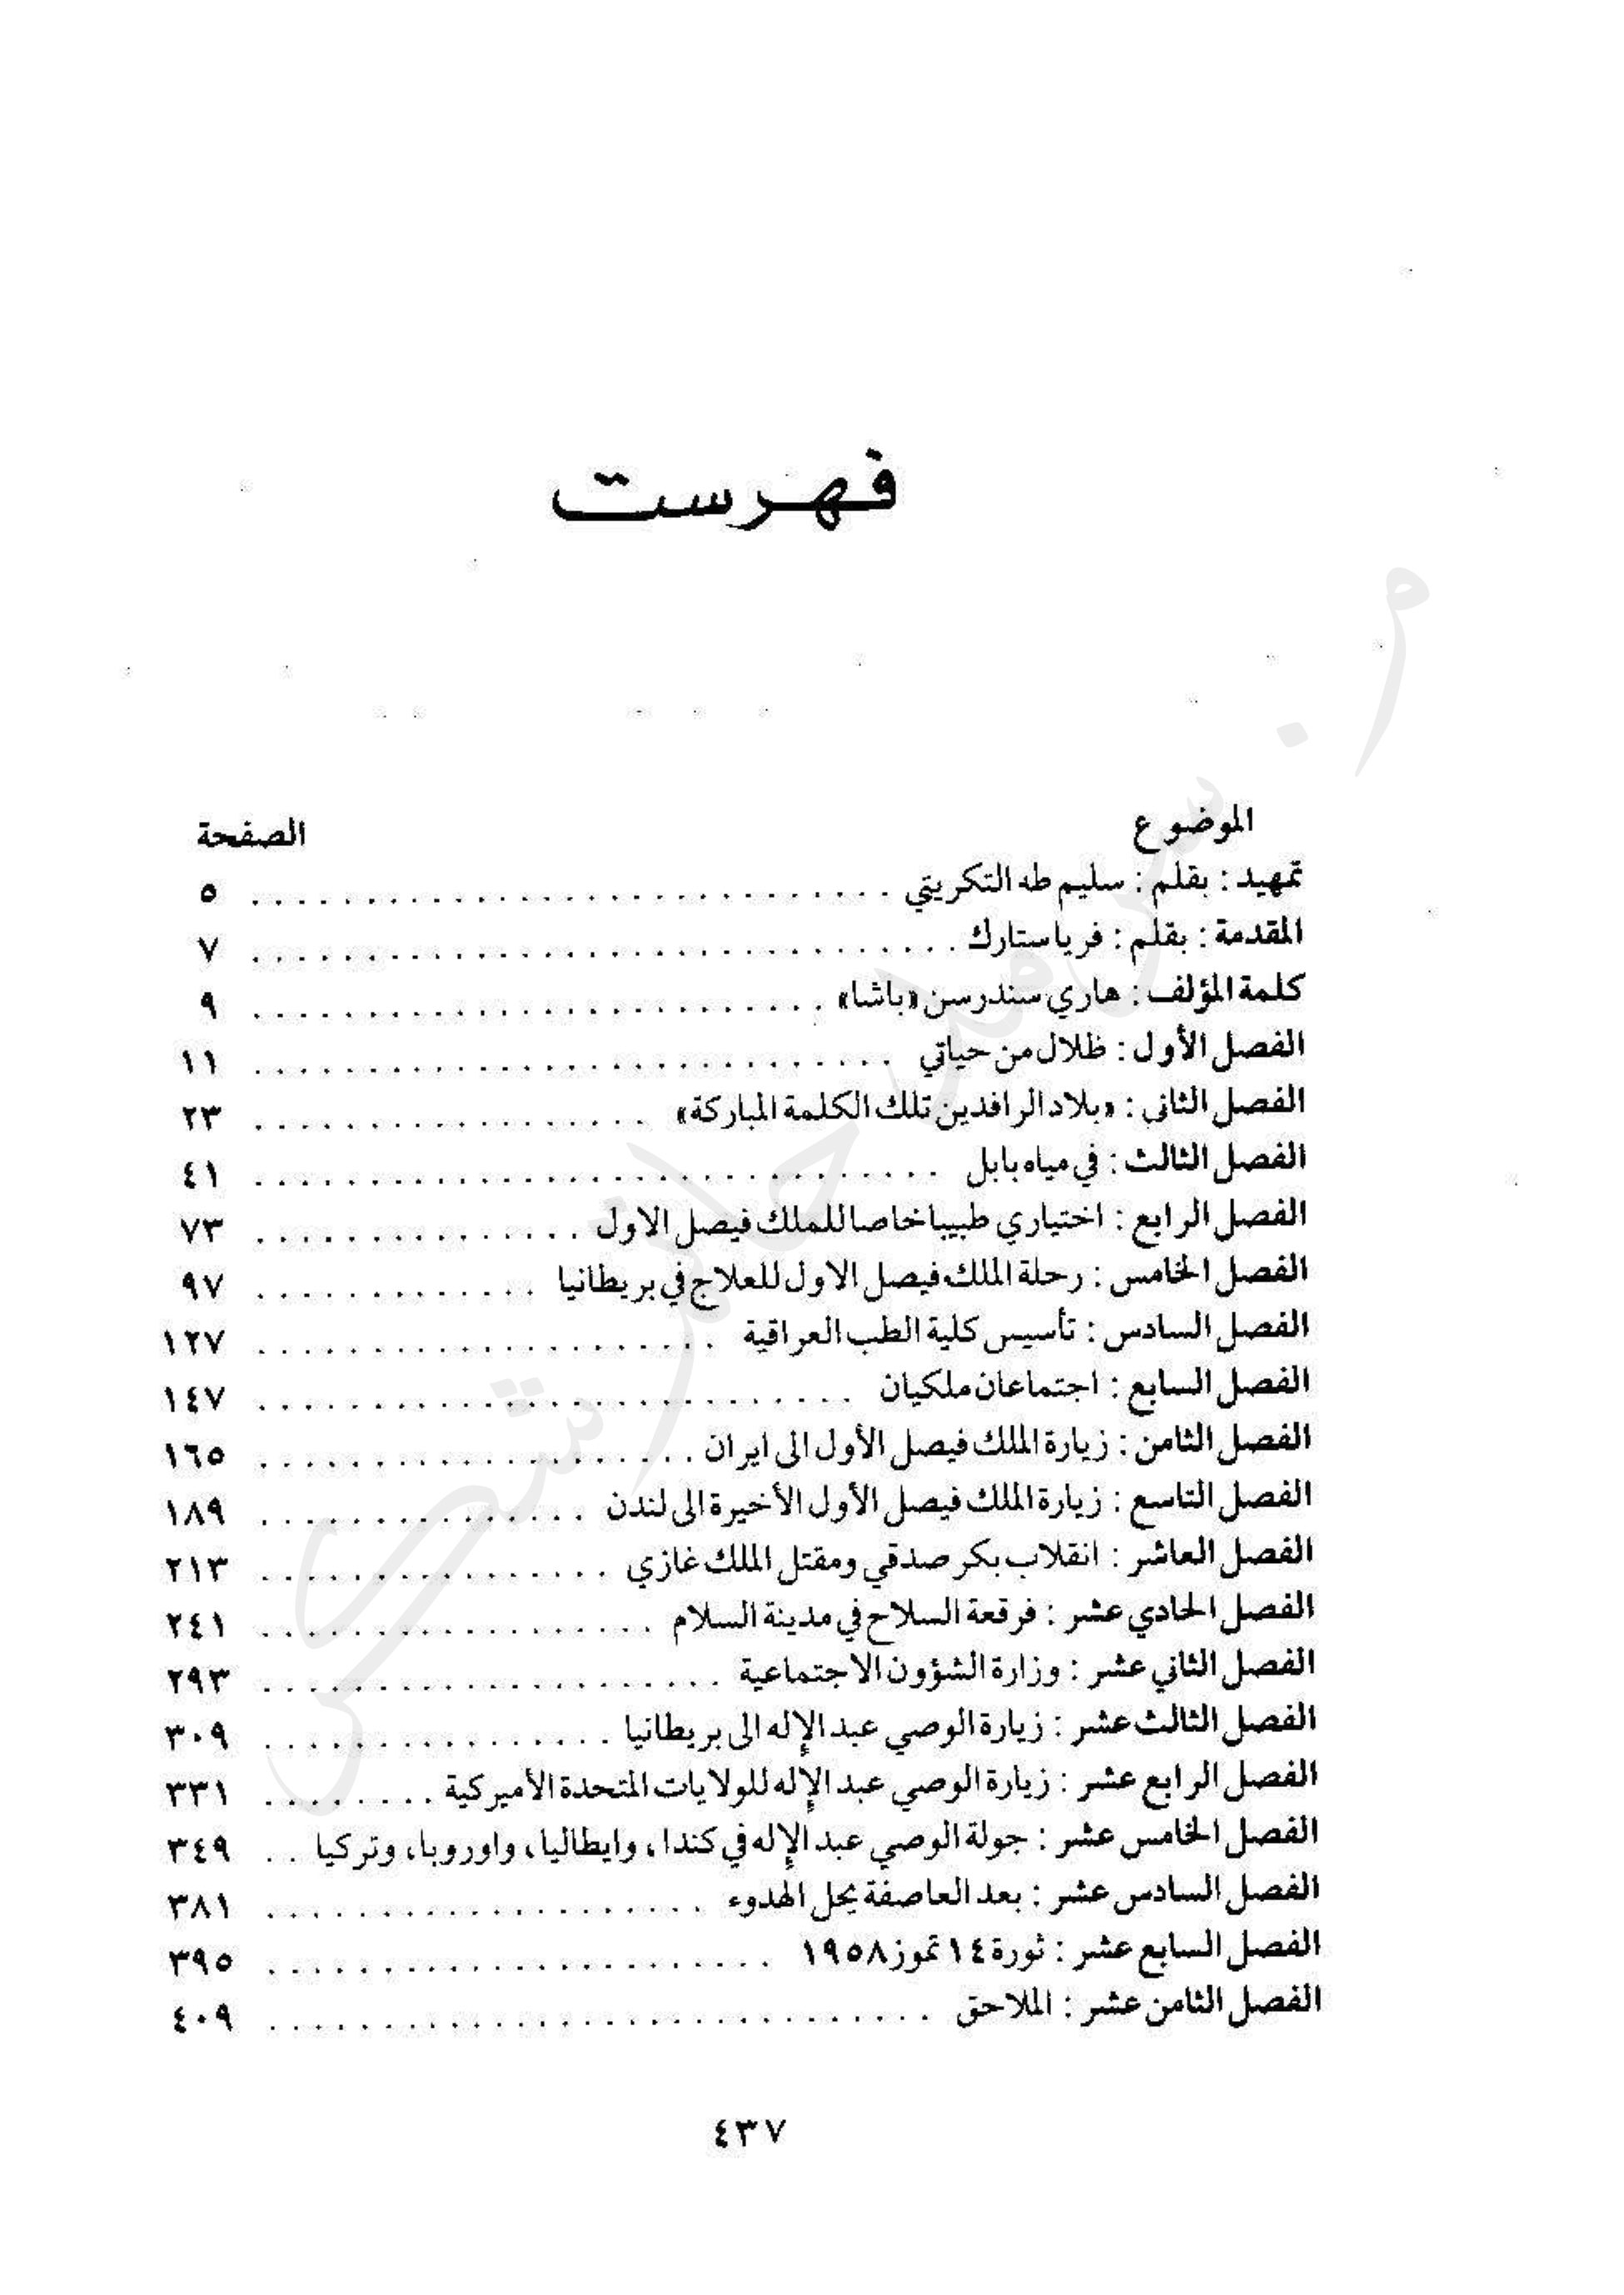 فهرست
الموضوع الصفحة
تمهيد : بقلم : سليم طه التكريتي . . . . . . . . . . . . . . . . . . . . . . . . . . . . ٥
المقدمة : بقلم : فريا ستارك . . . . . . . . . . . . . . . . . . . . . . . . . . . . . . ٧
كلمة المؤلف : هاري سندرسن «باشا» . . . . . . . . . . . . . . . . . . . . . . . . . ٩
الفصل الأول : ظلال من حياتي . . . . . . . . . . . . . . . . . . . . . . . . . . . . ١١
الفصل الثاني : «بلاد الرافدين تلك الكلمة المباركة» . . . . . . . . . . . . . . . . . ٢٣
الفصل الثالث : في مياه بابل . . . . . . . . . . . . . . . . . . . . . . . . . . . . . . ٤١
الفصل الرابع : اختياري طبيبا خاصا للملك فيصل الاول . . . . . . . . . . . . . . . ٧٣
الفصل الخامس : رحلة الملك فيصل الاول للعلاج في بريطانيا . . . . . . . . . . . . . ٩٧
الفصل السادس : تأسيس كلية الطب العراقية . . . . . . . . . . . . . . . . . . . . ١٢٧
الفصل السابع : اجتماعان ملكيان . . . . . . . . . . . . . . . . . . . . . . . . . . ١٤٧
الفصل الثامن : زيارة الملك فيصل الأول الى ايران . . . . . . . . . . . . . . . . . . . ١٦٥
الفصل التاسع : زيارة الملك فيصل الأول الأخيرة الى لندن . . . . . . . . . . . . . . ١٨٩
الفصل العاشر : انقلاب بكر صدقي ومقتل الملك غازي . . . . . . . . . . . . . . . ٢١٣
الفصل الحادي عشر : فرقعة السلاح في مدينة السلام . . . . . . . . . . . . . . . . . ٢٤١
الفصل الثاني عشر : وزارة الشؤون الاجتماعية . . . . . . . . . . . . . . . . . . . . ٢٩٣
الفصل الثالث عشر : زيارة الوصي عبد الإله الى بريطانيا . . . . . . . . . . . . . . . ٣٠٩
الفصل الرابع عشر : زيارة الوصي عبد الإله للولايات المتحدة الأميركية . . . . . . . . ٣٣١
الفصل الخامس عشر : جولة الوصي عبد الإله في كندا، وايطاليا، واوروبا، وتركيا . . ٣٤٩
الفصل السادس عشر : بعد العاصفة يحل الهدوء . . . . . . . . . . . . . . . . . . . ٣٨١
الفصل السابع عشر : ثورة ١٤ تموز ١٩٥٨ . . . . . . . . . . . . . . . . . . . . . . ٣٩٥
الفصل الثامن عشر : الملاحق . . . . . . . . . . . . . . . . . . . . . . . . . . . . . ٤٠٩
٤٣٧